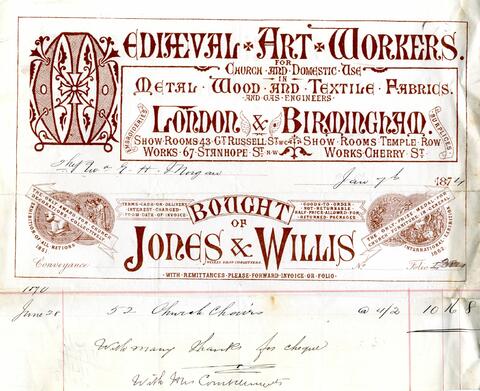 MEDIÆVAL ART WORKERS.
FOR
CHURCH AND DOMESTIC USE
IN
METAL WOOD AND TEXTILE FABRICS.
AND GAS ENGINEERS
EMBROIDERIES
LONDON & BIRMINGHAM.
SURPLICES
SHOW ROOMS 43 GT RUSSELL ST W.C. SHOW ROOMS TEMPLE ROW
WORKS 67 STANHOPE ST N.W. WORKS CHERRY ST.
Morgan
Jan 7th 1874
TERMS CASH ON DELIVERY
INTEREST CHARGED
FROM DATE OF INVOICE
BOUGHT
OF
GOODS TO ORDER
NOT RETURNABLE
HALF PRICE ALLOWED FOR
RETURNED PACKAGES
EXHIBITION
OF ALL NATIONS
1851
INTERNATIONAL
EXHIBITION
1862
JONES & WILLIS
Conveyance
No
Folio
WITH REMITTANCES PLEASE FORWARD INVOICE OR FOLIO
June 28 52 Church Chairs @ 4/2 10 16 8
With many thanks for cheque
With Mrs Compliments